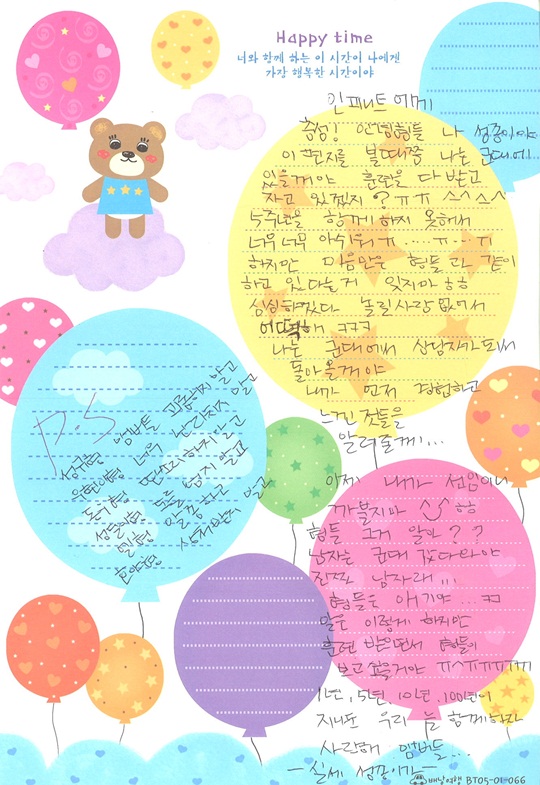 Happy time
너와 함께 하는 이 시간이 나에겐
가장 행복한 시간이야
인피니트 에게
충성! 안녕형들 나 성종이야
이 편지를 볼때쯤 나는 군대에
있을꺼야 훈련을 다 받고
자고 있겠지? ㅠㅠ ㅅ^ㅅ^
5주년을 함께 하지 못해서
너무 너무 아쉬워ㅠ ....ㅠ...ㅠ
하지만 마음만은 형들과 같이
하고 있다는거 잊지마 ㅎㅎ
심심하겠다 놀릴사람 없어서
어떡해 ㅋㅋㅋ
나는 군대에서 상남자가 되서
돌아올게야
내가 먼저 경험하고
느낀 것들을
알려줄게!...
이제 내가 선임이니
까불지마 ㅎㅎ
형들 그거 알아??
남자는 군대 갔다와야
진짜 남자래...
형들은 아기야...ㅋㅋ
말은 이렇게 하지만
훈련 받으면서 형들이
보고 싶을거야 ㅠㅅㅠㅠㅠㅠㅠ
1년, 5년, 10년, 100년이
지나도 우리 늘 함께하자
사랑해 멤버들...
- 실세 성종이가 -
P.S
성규형 멤버들 괴롭히지 말고
우현이형 너무 날라치지 말고
동우형 덤벙대지 말고
성열이형 까불지 말고
엘형 말장난 하고
호야형 상처받지 말고
배낭여행 BT05-01-066